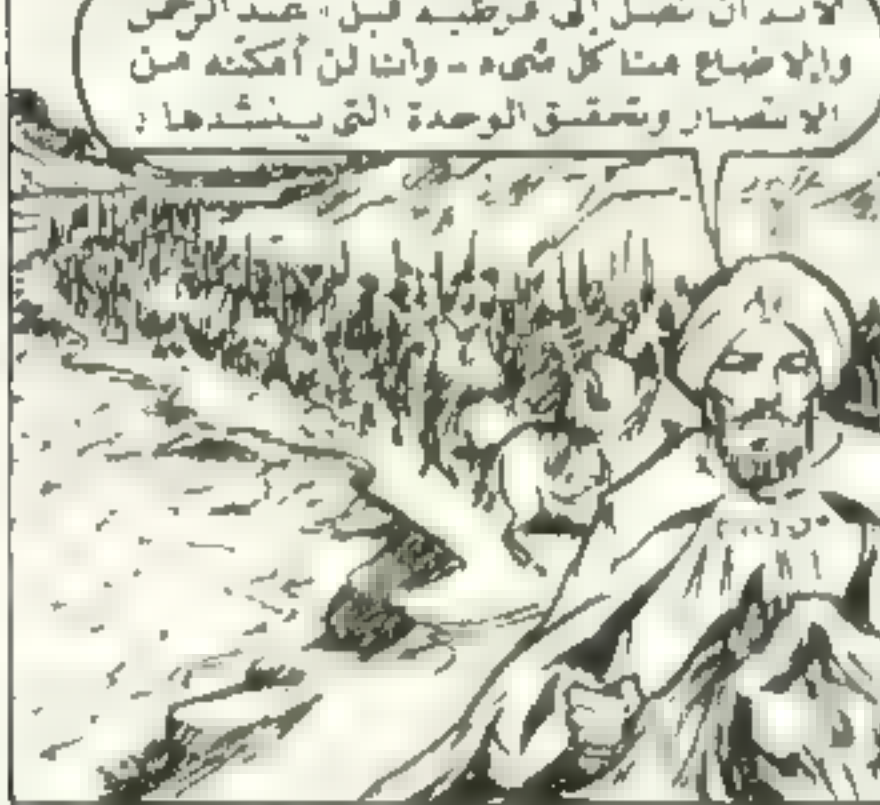 لابد أن نصل إلى قرطبه قبل "عبد الرحمن
وإلا ضاع منا كل شىء - وأنا لن أمكنه من
الانتصار وتحقيق الوحدة التى ينشدها :